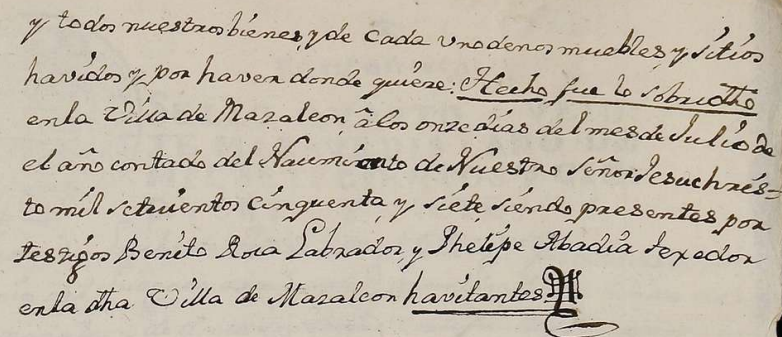 y todos nuestros bienes, y de cada uno de nos muebles, y sitios
havidos y por haver donde quiere; Hecho fue lo sobredho
en la Villa de Mazaleon, á los onze dias del mes de Julio de
el año contado del Nacimiento de Nuestro Señor Jesuchris-
to mil setecientos cinquenta, y siete siendo presentes por
testigos Benito Roia Labrador, y Phelipe Abadia texedor
en la dha Villa de Mazaleon havitantes